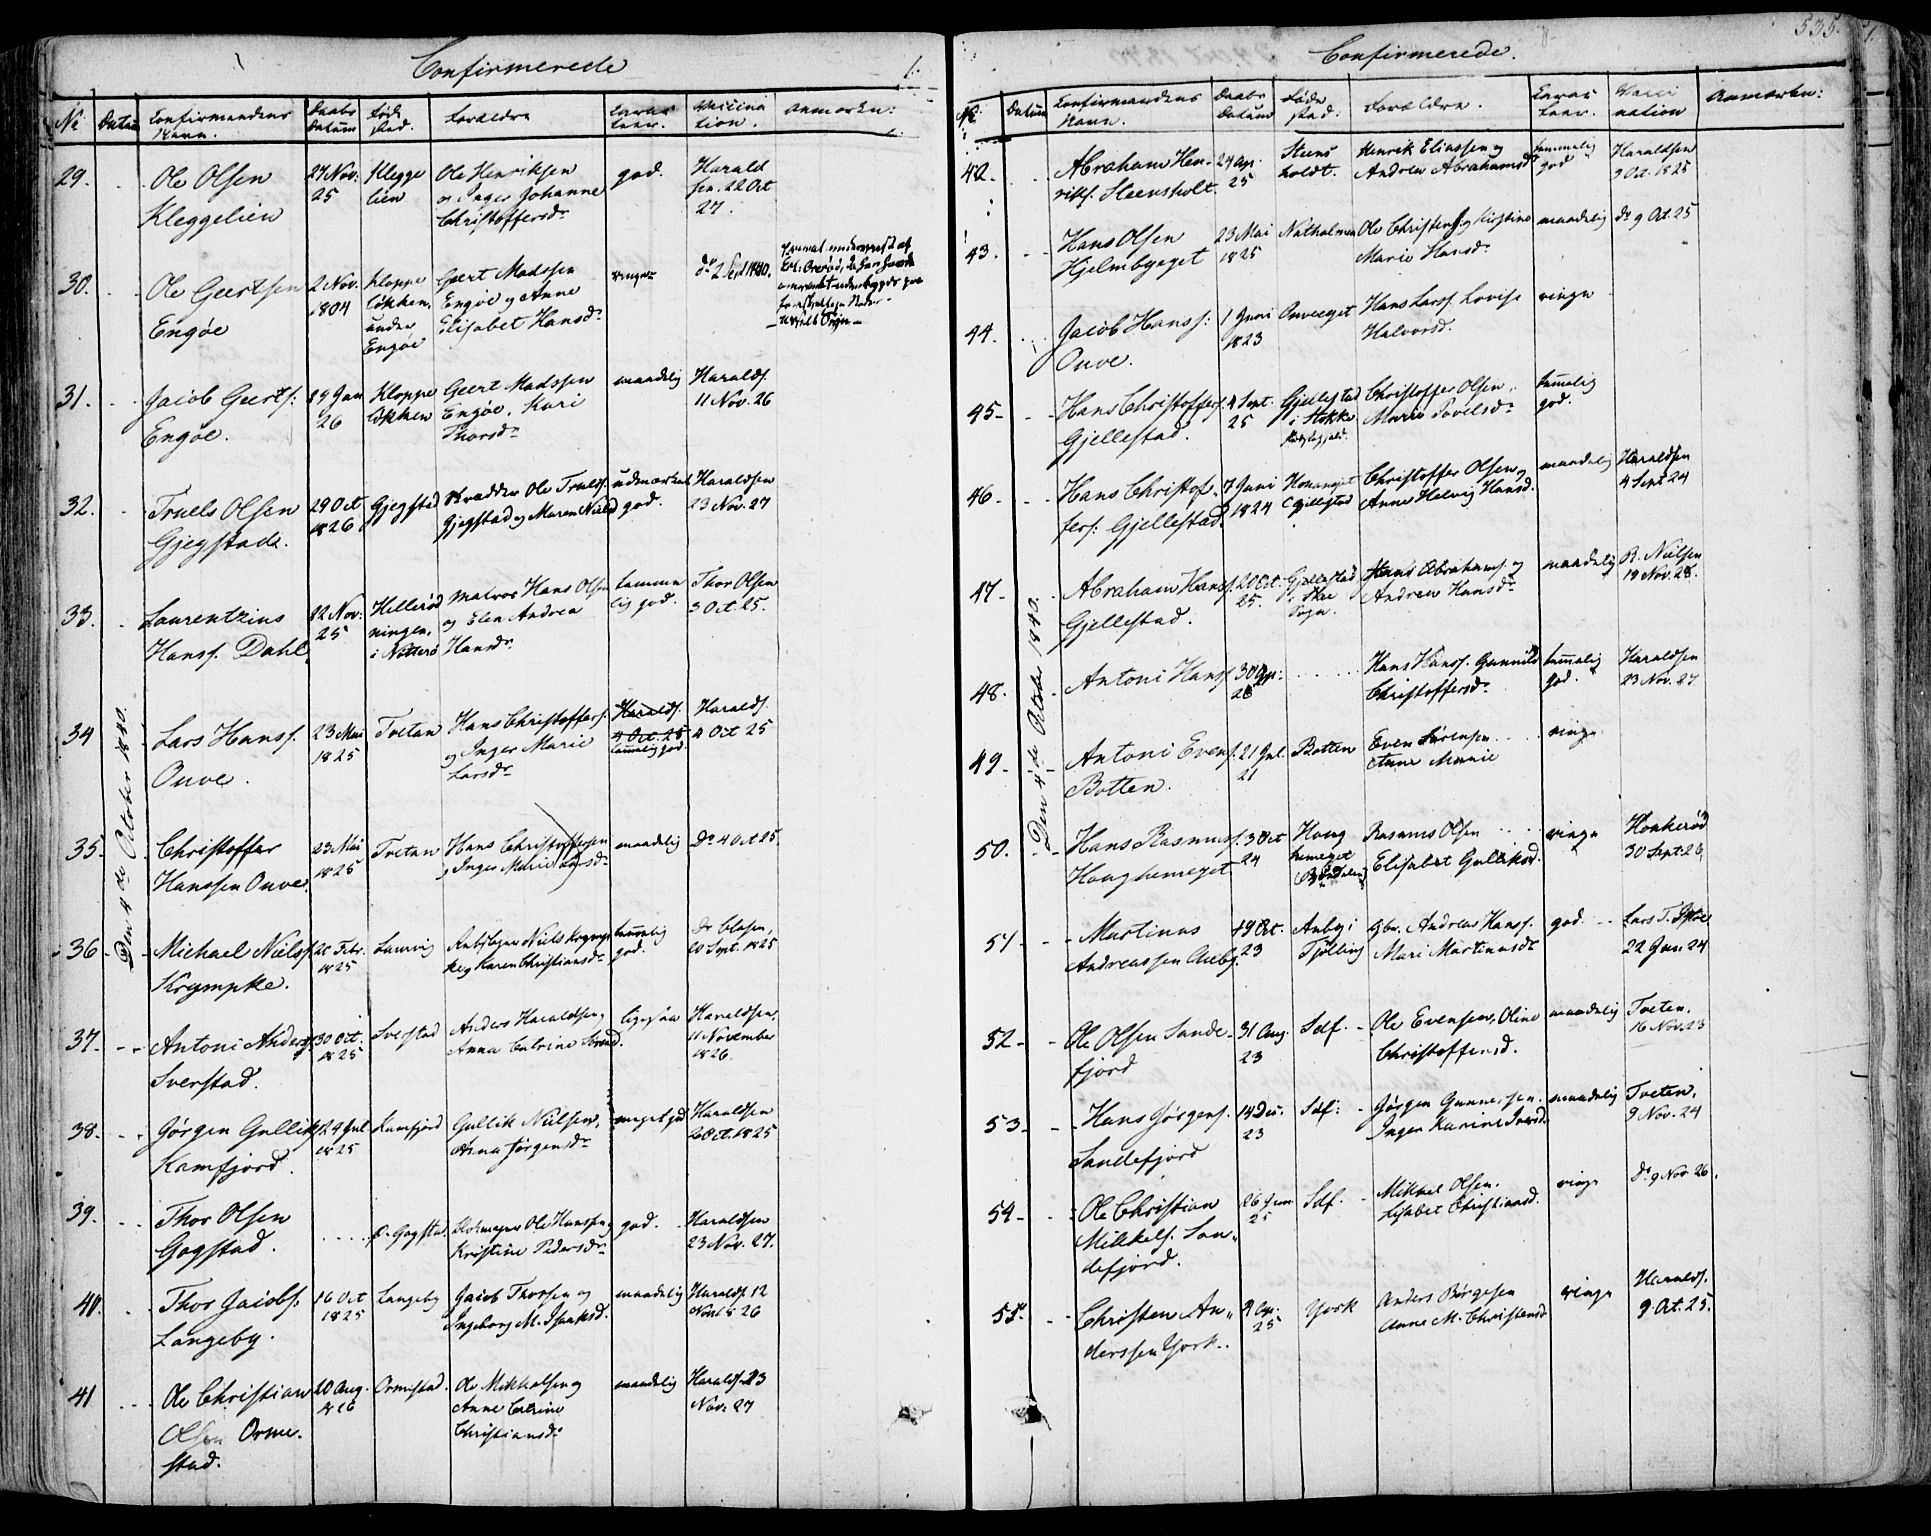 Confirmerede
No
Datum
Confirmandens
Navn.
Daabs
Datum
Føde
stad.
Forældre
Vaccina
tion.
Anmærkn:
Den 4de October 1840.
29.
Ole Olsen
Kleggelien
27 Nov:
25
Klegge
lien
Ole Henriksen
og Inger Johanne
Christoffersdr
god.
Harald
sen. 22 Oct
27.
30.
Ole Geertsen
Engøe
2 Nov.
1804
Kloppe
løkken.
under
Engøe
Geert Madssen
Engøe og Anne
Elisabet Hansdr
ringe
do 2 Sept 1840.
31.
Jacob Geerts:
Engøe.
29 Jan
26
Kloppe
løkken
Geert Madssen
Engøe, Kari
Thorsdr
maadelig
Haralds.
11 Nov. 26
32.
Truels Olsen
Gjegstad.
29 Oct
1826
Gjegstad
Skrædder Ole Trulds.
Gjegstad og Maren Nielsd
udmærket
god.
Haraldsen
23 Nov. 27
33.
Laurentzius
Hanss. Dahl.
22 Nov:
25
Hellerød
ningen.
i Nøtterø
Matros Hans Olsen
og Elen Andrea
Hansdr
temme
lig god.
Thor Olsen
3 Oct 25.
34
Lars Hanss.
Onve.
23 Mai
1825
Tvetan
Hans Christoffers.
og Inger Marie
Larsdr
Haralds.
4 Oct. 25
temmelig god.
Haralds.
4 Oct 25
35.
Christoffer
Hanssen Onve.
23 Mai
1825
Tvetan
Hans Christoffersen
og Inger Marie Larsdr
maadelig
Do 4 Oct 25
36
Michael Nielss.
Krympke.
Febr.
1825
Laurvig
Niels Krymp
ke og Karen Christiansdr
temmelig
god.
Sept. 1825
37.
Antoni Anders.
Sverstad.
30 Oct.
1825
Sverstad
Anders Haraldsen og
Anna Catrine
ligesaa
Haraldsen,
11 November
1826.
38.
Jørgen Gullik
Kamfjord.
29 Jul
1825
Kamfjord
Gullik Nielsen,
Anna Jørgensdr
meget god
Haraldsen
Oct. 1825
39.
Thor Olsen
Gogstad.
Ø. Gogstad.
Ole Hanssen og
Kristine Pedersdr
god.
Haraldsen
23 Nov. 27.
40.
Thor Jacobs.
Langeby.
16 Oct
1825
Langeby
Jacob Thorssen og
Ingeborg M. Isaksd.
maadelig
Haralds. 12
Nov. 1826
41
Ole Christian
Olsen Orme-
stad.
20 Aug.
1826
Ormestad.
Ole Mikkelsen og
Anne Catrine
Christiansdr
maadelig
Haralds. 23
Nov. 27
535.
Confirmerede.
No.
Datum
Confirmandens
Navn.
Daabs
Datum
Føde
stad.
Forældre.
Vacci
nation
Anmærkn:
Den 4de October 1840.
42.
Abraham Hen-
rikss. Steensholt.
24 Ap.
25
Steens
holdt.
Henrik Eliassen og
Andrea Abrahamsd
temmelig
god
Haraldsen
9 Oct. 1825
43.
Hans Olsen
Hjelmbyeget
23 Mai
1825
Natholmen
Ole Christens. og Kirstine
Marie Hansdr
maadelig
do 9 Oct. 25
44.
Jacob Hanss:
Onve.
1 Juni
1823
Onveeget
Hans Larss. Lovise
Halvorsd.
ringe
45.
Hans Christoffers.
Gjellestad.
4 Sept.
25
Gjellestad
i Stokke
Christoffer Olsen
Maria Povelsdr
temmelig
god.
46.
Hans Christof-
fers: Gjellestad.
7 Juni
1824
Gjellestad
Christoffer Olsen og
Anne Helvig Hansd.
maadelig
Haraldsen
4 Sept. 24
47.
Abraham Hanss.
Gjellestad.
2 Oct.
25.
Gjellestad
i Skee
Sogn.
Hans Abrahams. og
Andrea Hansdr
maadelig
R. Nielsen
19 Nov. 28.
48.
Antoni Hanss.
30 Ap:
Hans Hanss. Gunnild
Christoffersdr
temmelig
god.
Haraldsen
23 Nov. 27
49.
Antoni Evens.
Botten.
21 Jul.
21
Botten
Even Sørensen
Anne Marie
ringe
50.
Hans Rasmuss.
Houghemeget
3 Oct
24
Houg
hemeget
Rasmus Olsen
Elisabet Gulliksd.
ringe
Hoakerød
30 Sept. 26,
51
Martinus
Andreassen Auby.
19 Oct.
23
Auby i
Tjølling
Gbr. Andreas Hanss.
Mari Martinusdr
god.
22 Jan. 24
52
Ole Olsen Sande-
fjord
31 Aug.
23
Sdf.
Ole Evensen, Oline
Christoffersd.
maadelig
Tveten.
16 Nov. 23
53
Hans Jørgens.
Sandefjord
14 Dec.
23
Sdf:
Jørgen Gunnersen.
Inger Karine Iversd.
maadelig
Tveten,
9 Nov. 24
54
Ole Christian
Mikkels. San-
defjord.
26 Jun
25
Sdf.
Mikkel Olsen.
Lisabet Christiansd.
ringe
do 9 Nov 26.
55
Christen An-
derssen York.
Ap.
25
York
Anders Børgesen
Anne M. Christensd
ringe
Haralds.
9 Oct. 25.